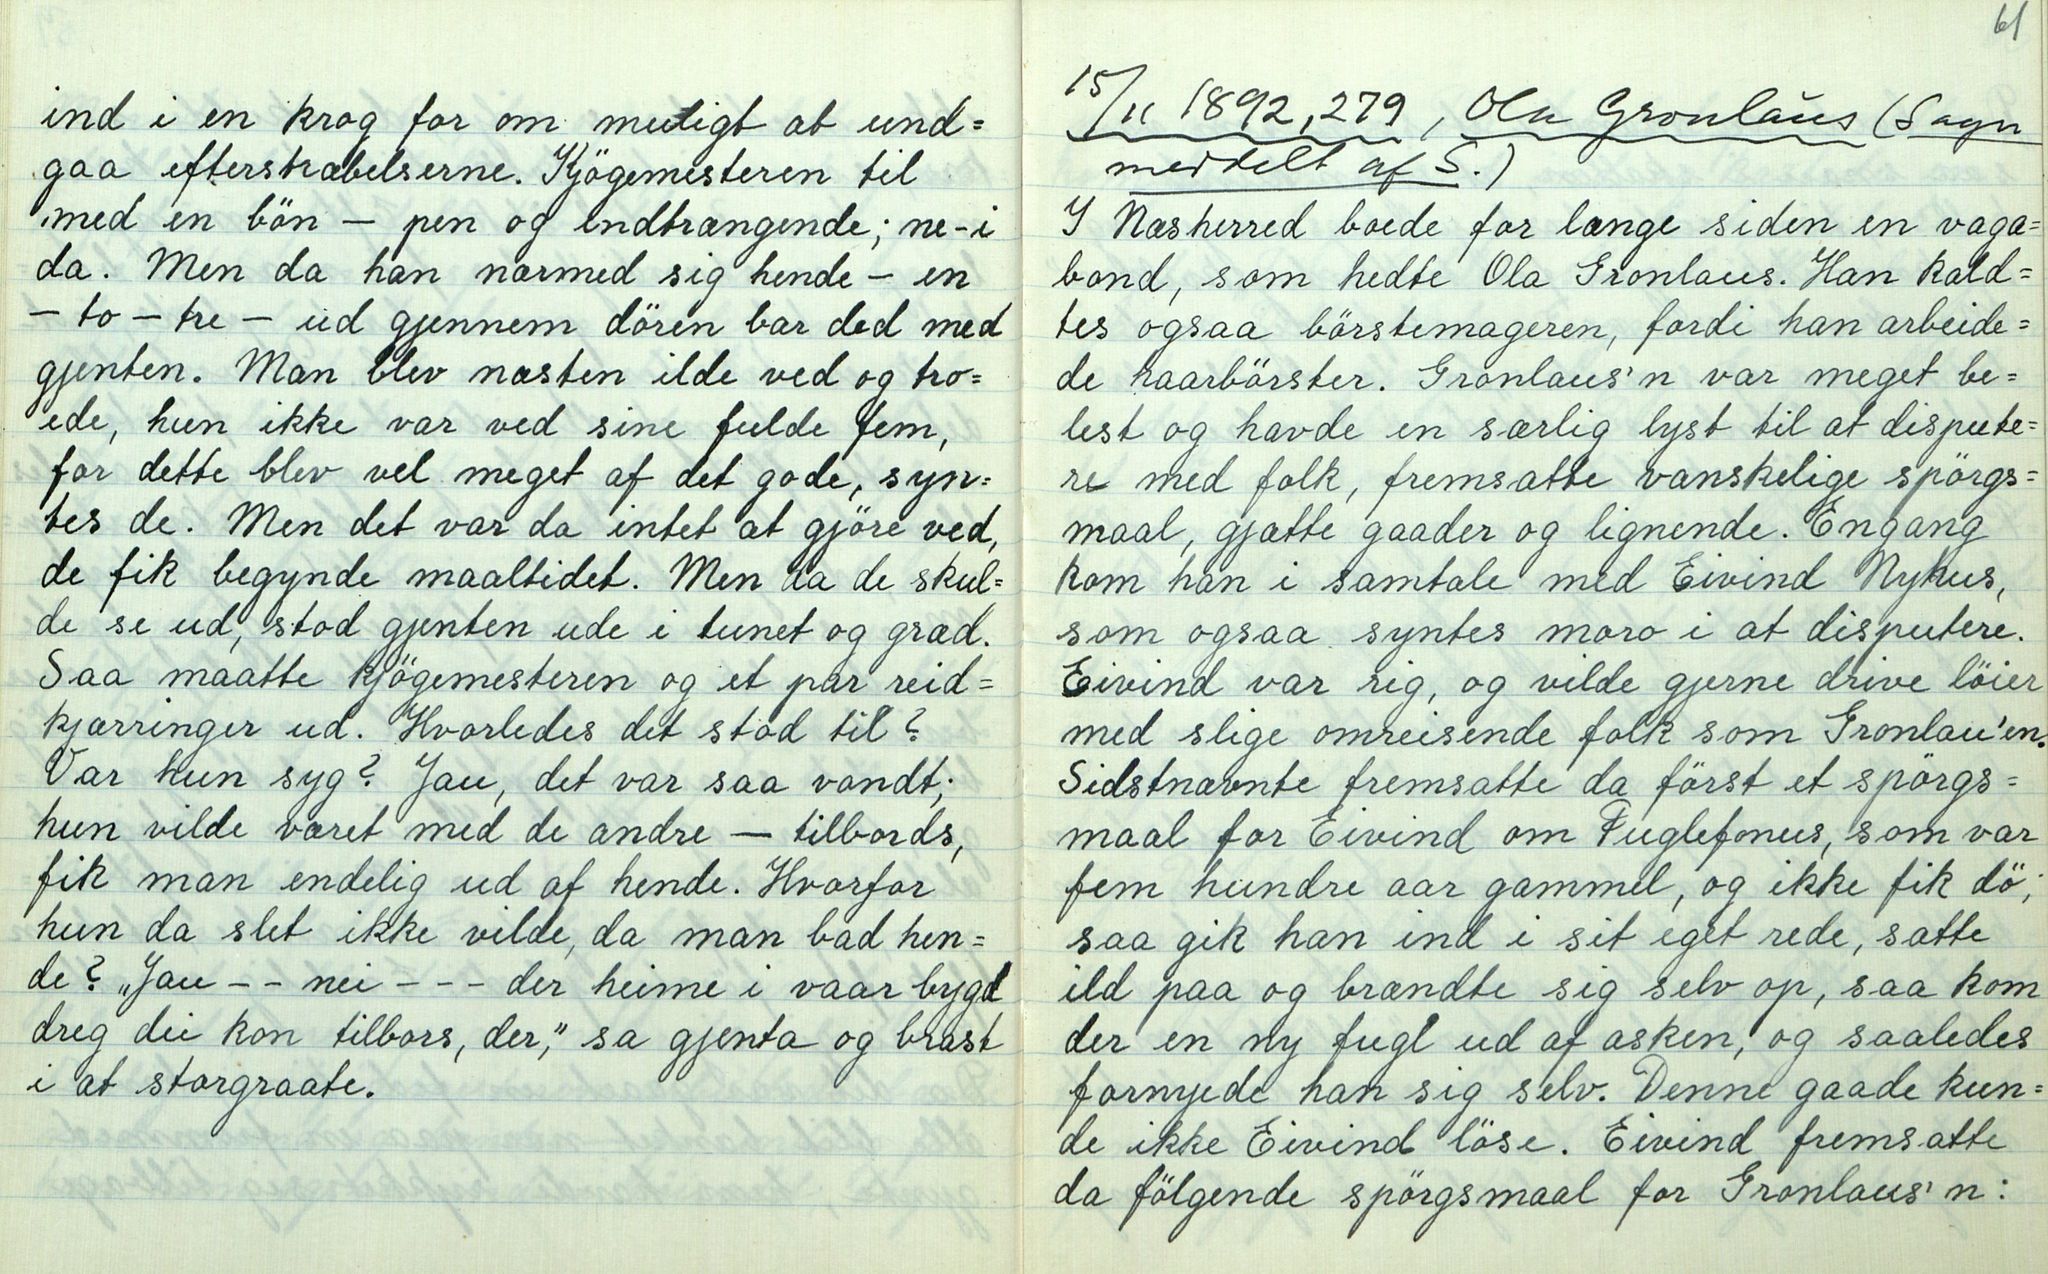 ind i en krog for om muligt at und=
gaa efterstræbelserne. Kjögemesteren til
med en bön – pen og indtrængende; ne-i
da. Men da han nærmed sig hende – en
– to – tre – ud gjennem dören bar ded med
gjenten. Man blev næsten ilde ved og tro=
ede, hun ikke var ved sine fulde fem,
for dette blev vel meget af det gode, syn=
tes de. Men det var da intet at gjöre ved,
de fik begynde maaltidet. Men da de skul=
de se ud, stod gjenten ude i tunet og græd.
Saa maatte kjögemesteren og et par reid=
kjærringer ud. Hvorledes det stod til?
Var hun syg? Jau, det var saa vondt;
hun vilde været med de andre – tilbords,
fik man endelig ud af hende. Hvorfor
hun da slet ikke vilde, da man bad hen=
de? „Jau – – nei – – – der heime i vaar bygd
dreg dei kon tilbors, der,” sa gjenta og brast
i at storgraate.
61
15/11 1892, 279, Ola Gronlaus (Sagn
meddelt af S.)
I Næsherred boede for længe siden en vaga=
bond, som hedte Ola Gronlaus. Han kald=
tes ogsaa börstemageren, fordi han arbeide=
de haarbörster. Gronlaus'n var meget be=
lest og havde en særlig lyst til at dispute=
re med folk, fremsatte vanskelige spörgs=
maal, gjætte gaader og lignende. Engang
kom han i samtale med Eivind Nyhus,
som ogsaa syntes moro i at disputere.
Eivind var rig, og vilde gjerne drive löier
med slige omreisende folk som Gronlau'en.
Sidstnævnte fremsatte da först et spörgs=
maal for Eivind om Fuglefonus, som var
fem hundre aar gammel, og ikke fik dö;
saa gik han ind i sit eget rede, satte
ild paa og brændte sig selv op, saa kom
der en ny fugl ud af asken, og saaledes
fornyede han sig selv. Denne gaade kun=
de ikke Eivind löse. Eivind fremsatte
da fölgende spörgsmaal for Gronlaus'n: